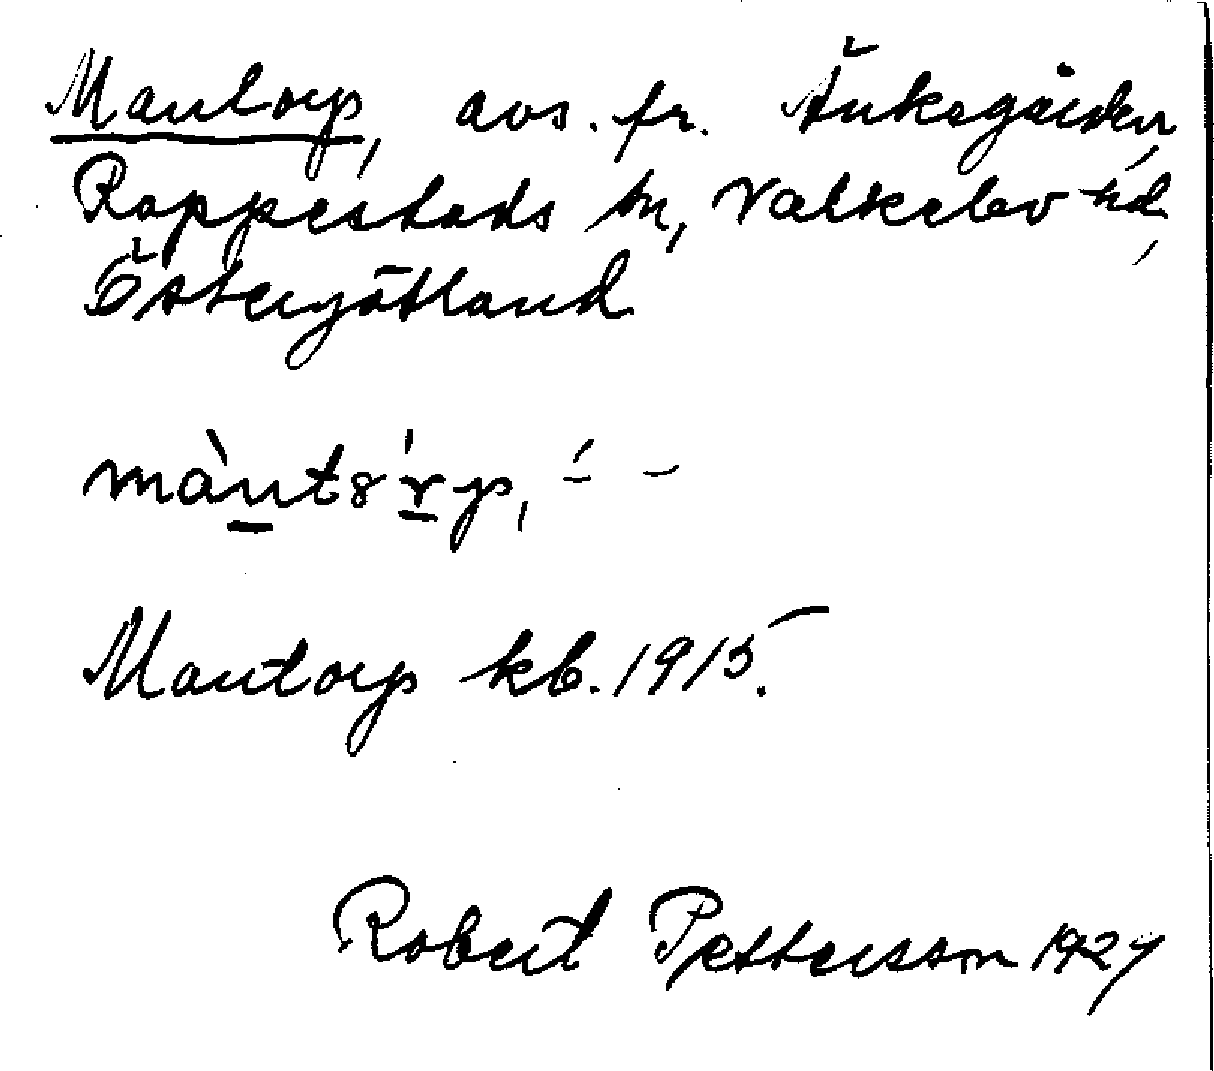 Mantorp, avs. fr. Änkegården,
Rappestads sn, Valkebo hd,
Östergötland
Mantorp kb. 1915.
Robert Pettersson 1927